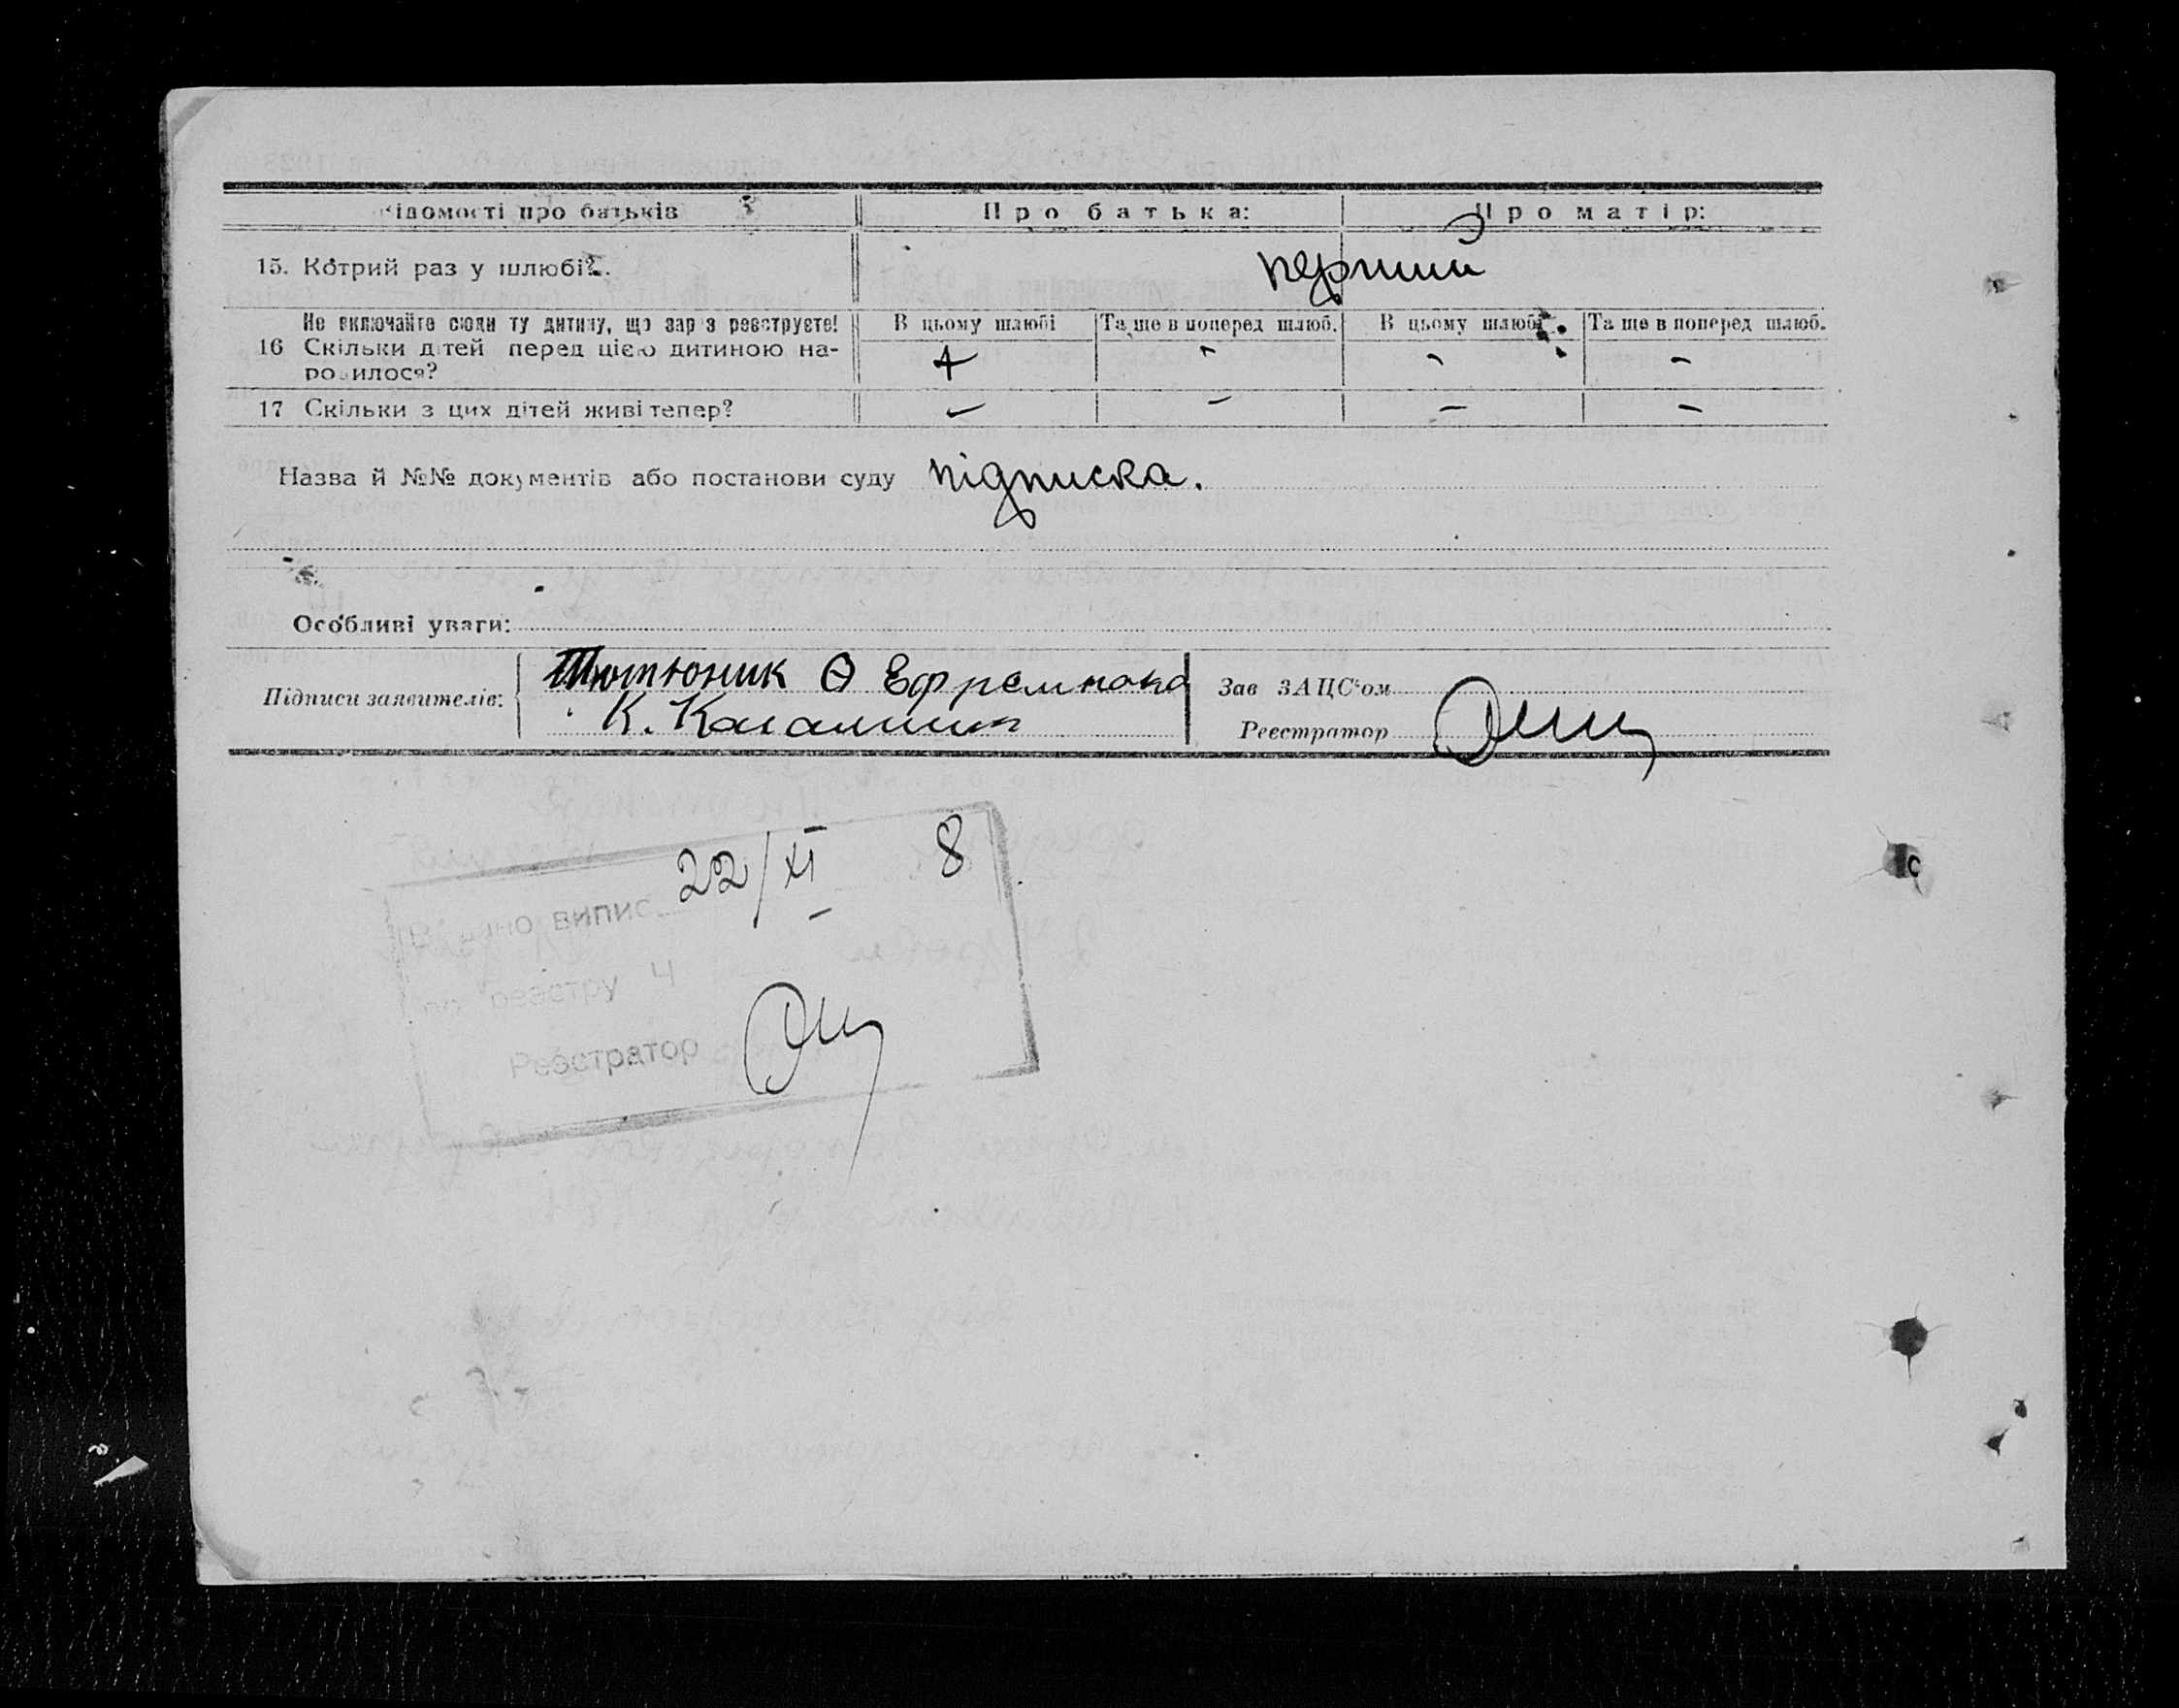 Відомості про батьків Про батька: Про матір:
15. Котрий раз у шлюбі?.. перший
Не включайте сюди ту дитину, що зараз реєструєте! В цьому шлюбі Та ще в поперед шлюб. В цьому шлюбі Та ще в поперед шлюб.
16 Скільки дітей перед цією дитиною на-
родилося? + - - -
17 Скільки з цих дітей живі тепер? - - - -
Назва й №№ документів або постанови суду підписка.
Особливі уваги:
Підписи заявителів: Тютюник Ѳ
К.
Зав ЗАЦС'ом
Реєстратор
22/XI 8
Видано випис
по реєстру Ч
Реєстратор